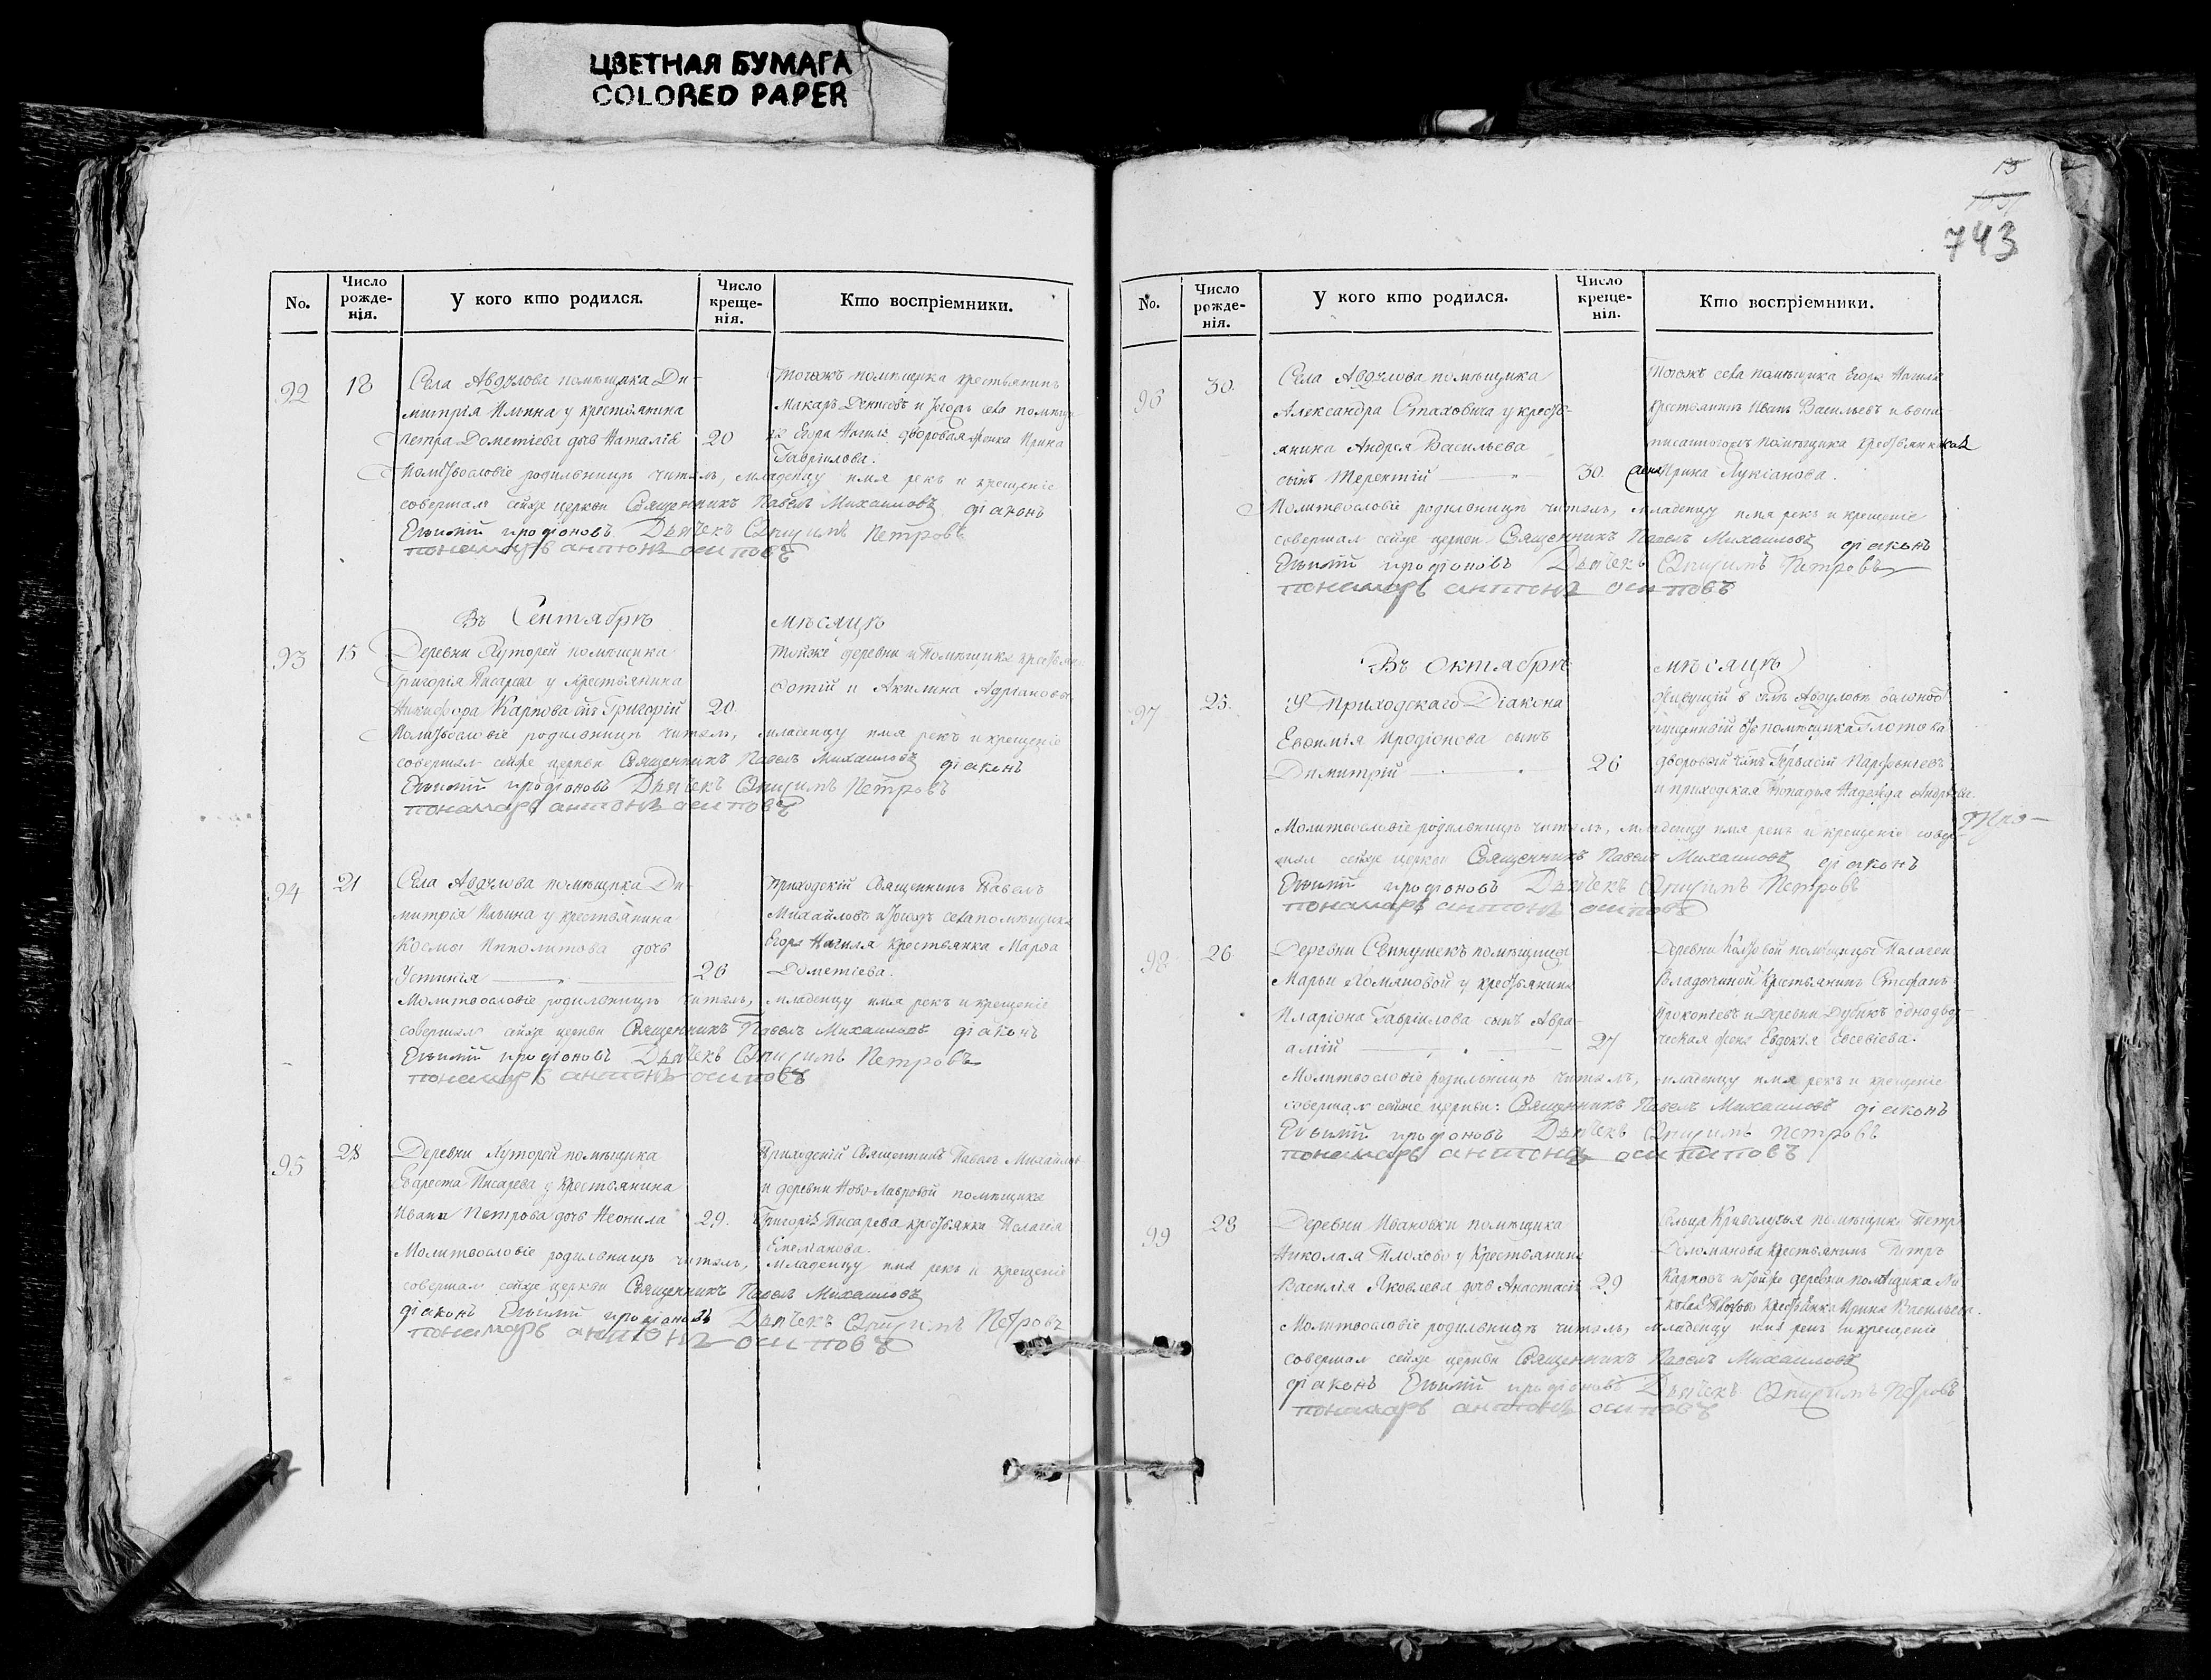 ЦВЕТНАЯ БУМАГА
COLORED PAPER
No.
Число рожде-нія.
У кого кто родился.
Число креще-нія.
Кто воспріемники.
92
18
Села Авдулова помѣщика Ди-
митрія Ильина у крестьянина
Петра Дометіева дочь Наталія
20
тогожъ помѣщика крестьянинъ
Макаръ Денисовъ и тогожъ села помѣщи
ка Егора дворовая женка Ирина
Гавріилова.
Молитвословіе родильницѣ читалъ, младенцу имя рекъ и крещеніе
совершалъ сейже церкви Священникъ Павелъ Михаиловъ діаконъ
Евѳимій иродіоновъ Дьячекъ Петровъ
пономарь антонъ осиповъ
Въ Сентябрѣ мѣсяцѣ
93
15
Деревни Хуторей помѣщика
Григорія Писарева у крестьянина
Никифора Карпова сынъ Григорій
20.
тойже деревни и Помѣщика крестьяне
Фотій и Акилина Адріановы
Молитвословіе родильницѣ читалъ, младенцу имя рекъ и крещеніе
совершалъ сейже церкви Священникъ Павелъ Михаиловъ діаконъ
Евѳимій иродіоновъ Дьячекъ Петровъ
пономарь антонъ осиповъ
94
21
Села Авдулова помѣщика Ди
митрія Ильина у крестьянина
Космы Ипполитова дочь
Устинія
26
Приходскій Священникъ Павелъ
Михайловъ и тогожъ села помѣщика
Егора крестьянка Марѳа
Дометіева.
Молитвословіе родильницѣ читалъ, младенцу имя рекъ и крещеніе
совершалъ сейже церкви Священникъ Павелъ Михаиловъ діаконъ
Евѳимій иродіоновъ Дьячекъ Петровъ
пономарь антонъ осиповъ
95
28
Деревни Хуторей помѣщика
Евареста Писарева у крестьянина
Ивана Петрова дочь Неонила
29.
Приходскій Священникъ Павелъ Михайловъ
и деревни Ново-Лавровой помѣщика
Григорія Писарева крестьянка Пелагія
Емеліанова.
Молитвословіе родильницѣ читалъ, младенцу имя рекъ и крещеніе
совершалъ сейже церкви Священникъ Павелъ Михаиловъ
діаконъ Евѳимій иродіоновъ Дьячекъ Петровъ
пономарь антонъ осиповъ
15
743
No.
Число рожде-нія.
У кого кто родился.
Число креще-нія.
Кто воспріемники.
96
30.
Села Авдулова помѣщика
Александра Стаховича у кресть-
янина Андрея Васильева
сынъ Терентій
30.
Тогожъ села помѣщика Егора
крестьянинъ Иванъ Васильевъ и
помѣщика крестьянская
жена Ирина Лукіанова.
Молитвословіе родильницѣ читалъ, младенцу имя рекъ и крещеніе
совершалъ сейже церкви Священникъ Павелъ Михаиловъ діаконъ
Евѳимій иродіоновъ Дьячекъ Петровъ
пономарь антонъ осиповъ
Въ Октябрѣ мѣсяцѣ
97
25.
У Приходскаго Діакона
Евѳимія Иродіонова сынъ
Димитрій
26
Живущій в селѣ Авдуловѣ вольноот
пущенный отъ помѣщика Глотова
дворовый Гервасій Парфеніевъ
и приходская Попадья Надежда Андреева.
Молитвословіе родильницѣ читалъ, младенцу имя рекъ и крещеніе совер-
шалъ сейже церкви Священникъ Павелъ Михаиловъ діаконъ
Евѳимій иродіоновъ Дьячекъ Петровъ
пономарь антонъ осиповъ
98
26.
Деревни Свинушекъ помѣщицы
Марьи Хомяковой у крестьянина
Иларіона Гавріилова сынъ Авра-
амій
27
Деревни помѣщицы Пелагеи
крестьянинъ Стефанъ
Прокопіевъ и Деревни Дубикъ однодвор-
ческая жена Евдокія Евсевіева.
Молитвословіе родильницѣ читалъ, младенцу имя рекъ и крещеніе
совершалъ сейже церкви: Священникъ Павелъ Михаиловъ діаконъ
Евѳимій иродіоновъ Дьячекъ Петровъ
пономарь антонъ осиповъ
99
28
Деревни Ивановки помѣщика
Николая Плохово у крестьянина
Василія Яковлева дочь Анастасія
29
Сельца Криволучья помѣщика Петра
крестьянинъ Петръ
Карповъ и тойже деревни помѣщика Ни
колая Плохово крестьянка Ирина Васильева.
Молитвословіе родильницѣ читалъ, младенцу имя рекъ и крещеніе
совершалъ сейже церкви Священникъ Павелъ Михаиловъ
діаконъ Евѳимій иродіоновъ Дьячекъ Петровъ
пономарь антонъ осиповъ